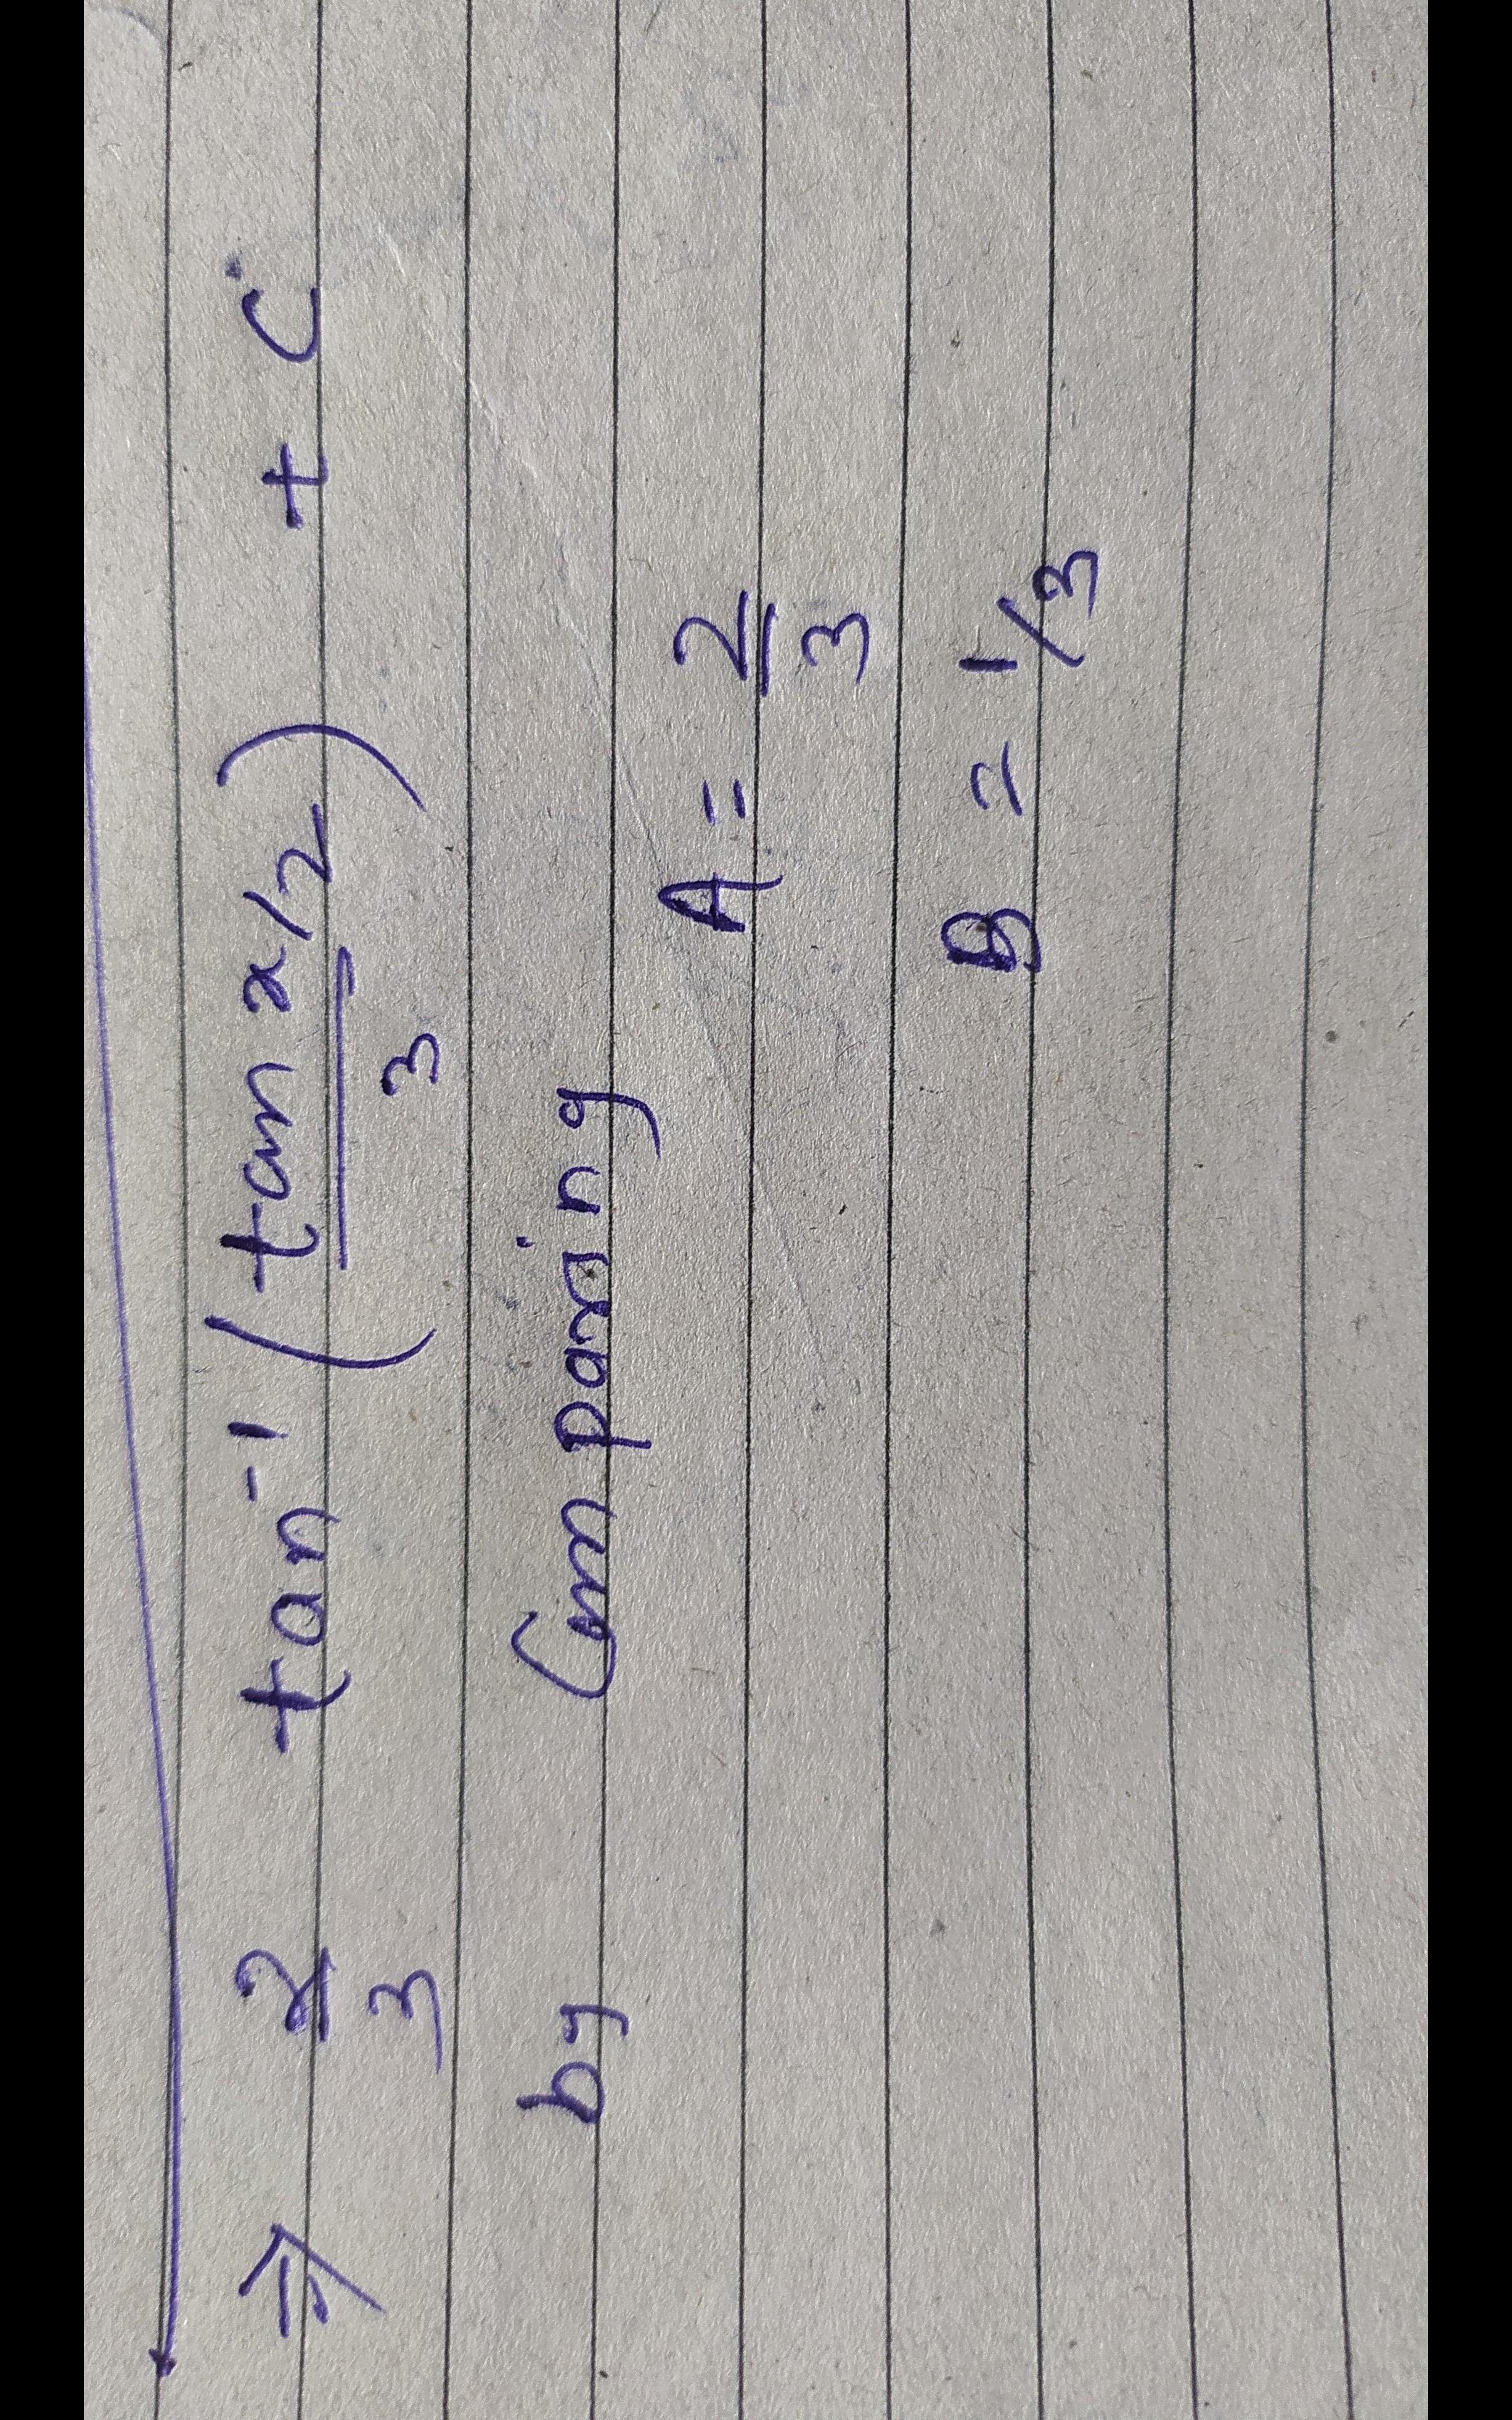 ⇒ 2/3 tan⁻¹ (tan x/2 / 3) + C
by Comparing
A = 2/3
B = 1/3